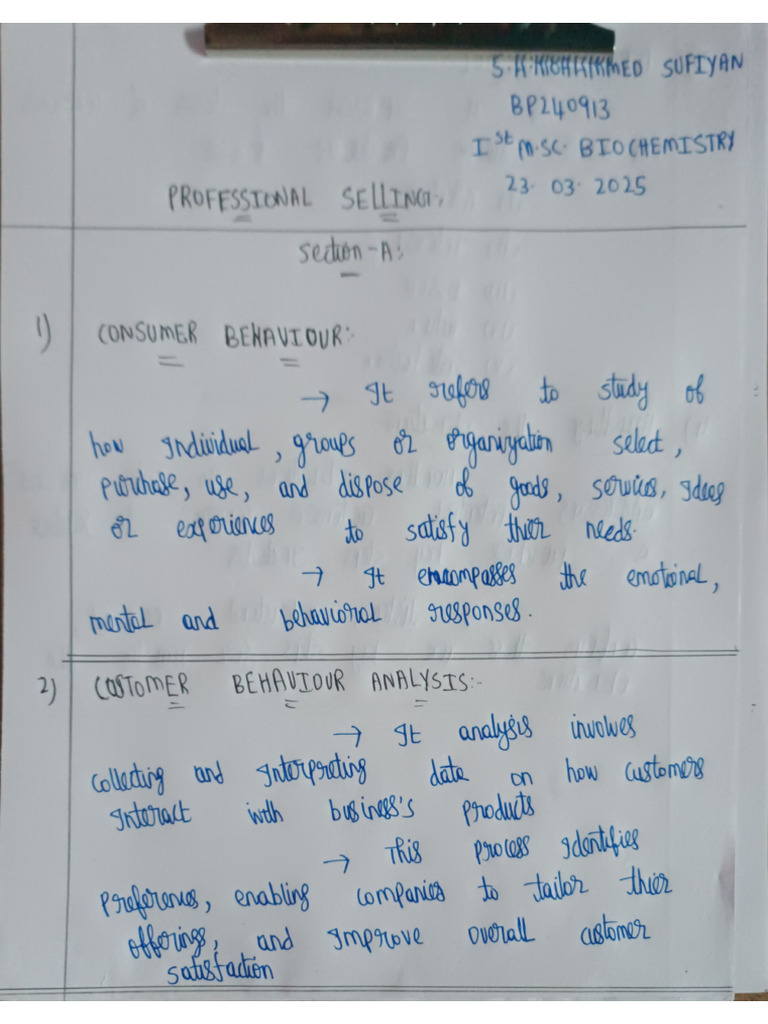 S.A. MOHAMMED SUFIYAN
BP240913
Ist M.SC. BIOCHEMISTRY
23.03.2025
PROFESSIONAL SELLING:-
Section-A:
1) CONSUMER BEHAVIOUR:-
→ It refers to study of
how Individual, groups or organization select,
purchase, use, and dispose of goods, services, Ideas
or experiences to satisfy thier needs.
→ It encompasses the emotional,
mental and behavioral responses.
2) COSTOMER BEHAVIOUR ANALYSIS:-
→ It analysis involves
collecting and Interpreting data on how customers
Interact with business's products
→ This process Identifies
preferences, enabling companies to tailor thier
offerings, and Improve overall customer
satisfaction